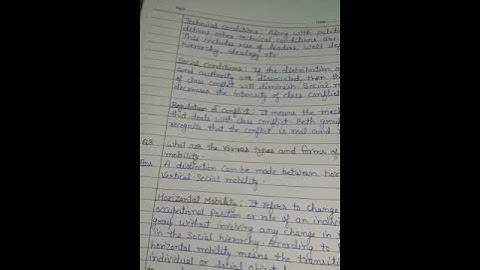 Technical conditions : Along with politi
defines other technical conditions are
This includes rise of leaders, well de
hierarchy, ideology etc.
Social Conditions : If the distribution o
and authority are dissociated, then th
of class conflict will diminish. Social m
decreases the intensity of class conflict
Regulation of conflict : It means the mech
that deals with class conflict. Both grou
recognize that the conflict is real and
Q3. What are the various types and forms of
mobility.
Ans A distinction can be made between hor
vertical Social mobility.
Horizontal Mobility : It refers to change
occupational position or role of an indivi
group without involving any change in t
in the Social hierarchy. According to
horizontal mobility means the transiti
individual or social object